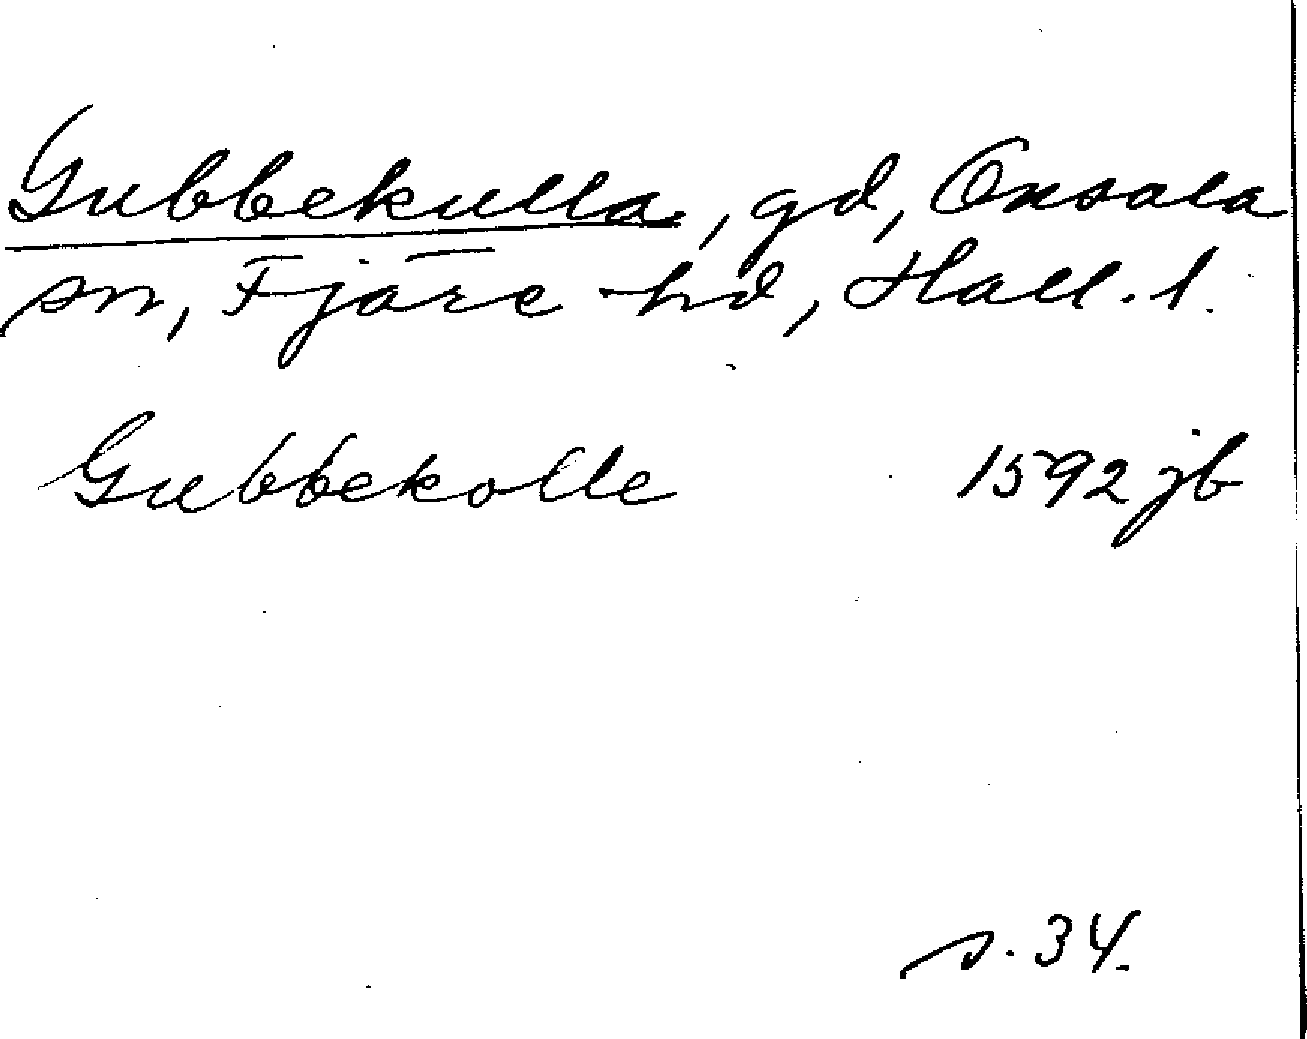 Gubbekulla, gd, Onsala
sn, Fjäre hd, Hall. l.
Gubbekolle 1592 jb
s. 34.